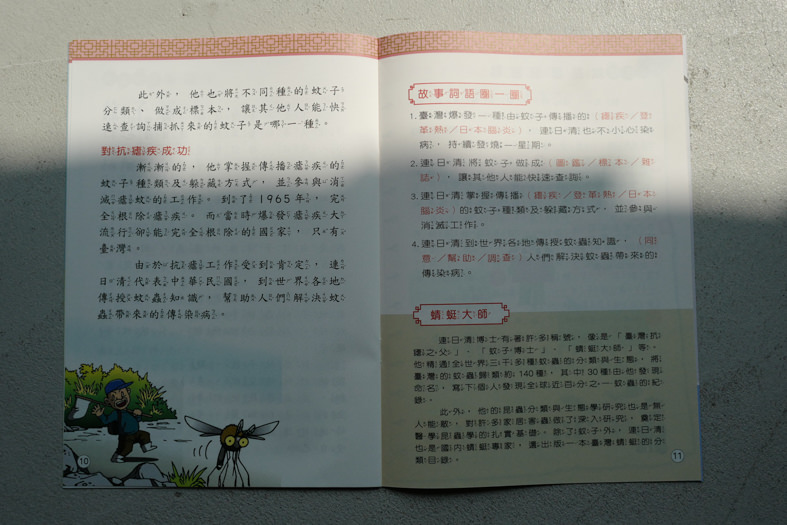 此外，他也將不同種的蚊子
分類、做成標本，讓其他人能快
速查詢捕抓來的蚊子是哪一種。
對抗瘧疾成功
漸漸的，他掌握傳播瘧疾的
蚊子種類及躲藏方式，並參與消
滅瘧蚊的工作。到了1965年，完
全根除瘧疾。而當時爆發瘧疾大
流行卻能完全根除的國家，只有
臺灣。
由於抗瘧工作受到肯定，連
日清代表中華民國，到世界各地
傳授蚊蟲知識，幫助人們解決蚊
蟲帶來的傳染病。
10
故事詞語圈一圈
1.臺灣爆發一種由蚊子傳播的（瘧疾／登
革熱／日本腦炎），連日清也不小心染
病，持續發燒一星期。
2.連日清將蚊子做成（圖鑑／標本／雜
誌），讓其他人能快速查詢。
3.連日清掌握傳播（瘧疾／登革熱／日本
腦炎）的蚊子種類及躲藏方式，並參與
消滅工作。
4.連日清到世界各地傳授蚊蟲知識，（同
意／幫助／調查）人們解決蚊蟲帶來的
傳染病。
蜻蜓大師
連日清博士有著許多稱號，像是「臺灣抗
瘧之父」、「蚊子博士」、「蜻蜓大師」等。
他精通全世界三千多種蚊蟲的分類與生態，將
臺灣的蚊蟲歸類約140種，其中30種由他發現
命名，寫下個人發現全球近百分之一蚊蟲的紀
錄。
此外，他的昆蟲分類與生態學研究也是無
人能敵，對許多家居害蟲做了深入研究，奠定
醫學昆蟲學的扎實基礎。除了蚊子外，連日清
也是國內蜻蜓專家，還出版一本臺灣蜻蜓的分
類目錄。
11